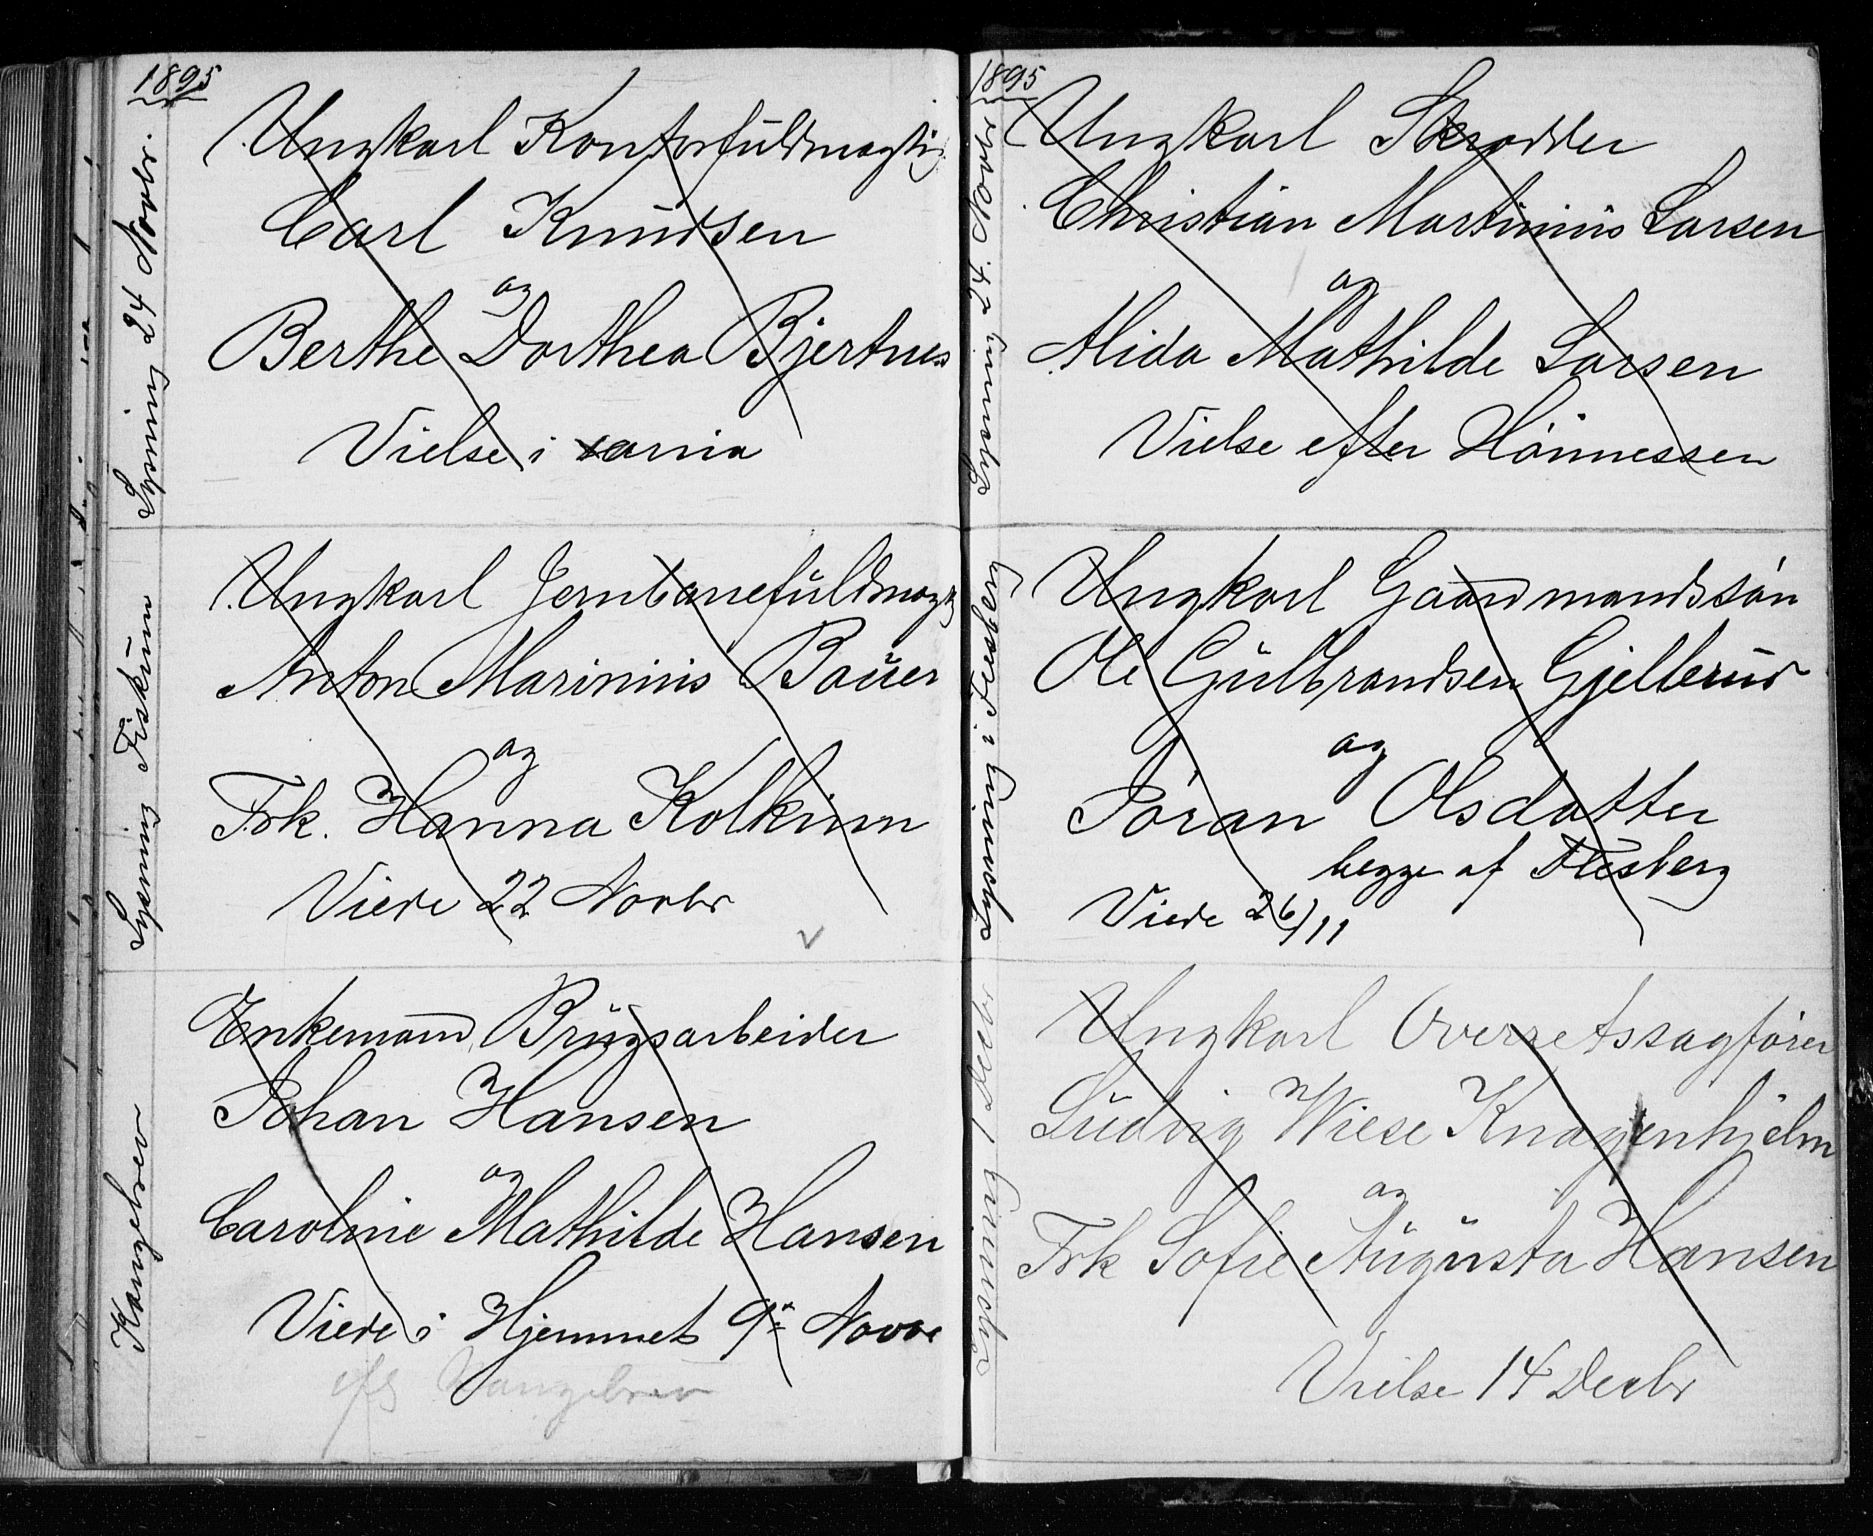 1895
Lysning 24 Novbr.
Ungkarl Kontorfuldmægtig
Carl Knudsen
og
Berthe Dorthea Bjertnes
Vielse i xania
Lysning Fiskum
Ungkarl Jernbanefuldmægt
Anton Marinius Bauer
og
Frk. Hanna Kolkinn
Viede 22 Novbr
Kongebrev
Enkemand, Brugsarbeider
Johan Hansen
og
Caroline Mathilde Hansen
Viede i Hjemmet 9de Novbr
efs Kongebrev
1895
Lysning 24. Novbr
Ungkarl Skrædder
Christian Martinius Larsen
og
Alida Mathilde Larsen
Vielse efter Höimessen
Lysning i Flesberg
Ungkarl Gaardmandssön
Ole Gulbrandsen Gjellerud
og
Jöran Olsdatter
begge af Flesberg
Viede 26/11
Lysning 1 Decbr
Ungkarl Overretssagförer
Ludvig Wiese Knagenhjelm
og
Frk Sofie Augusta Hansen
Vielse 14 Decbr